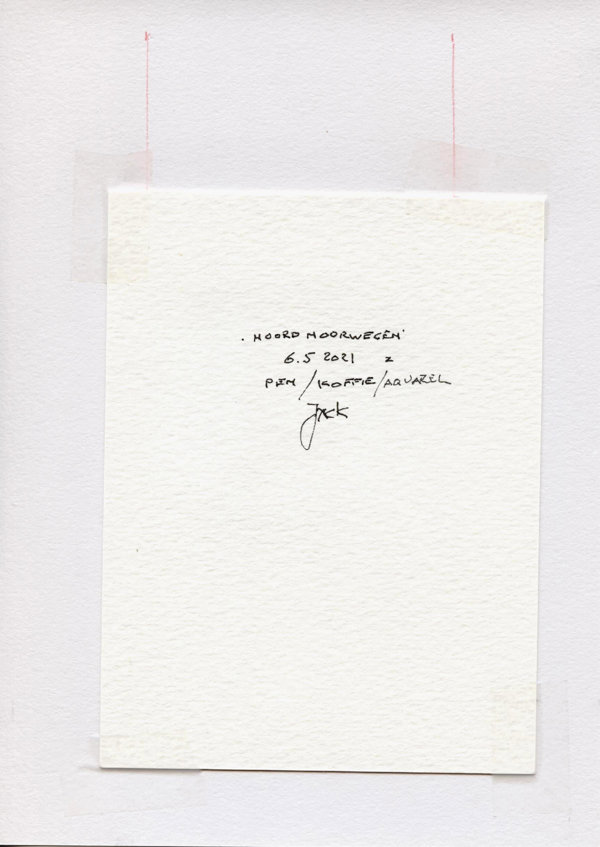 . NOORD NOORWEGEN.
6.5 2021 z
PEN / KOFFIE / AQUAREL
Jack